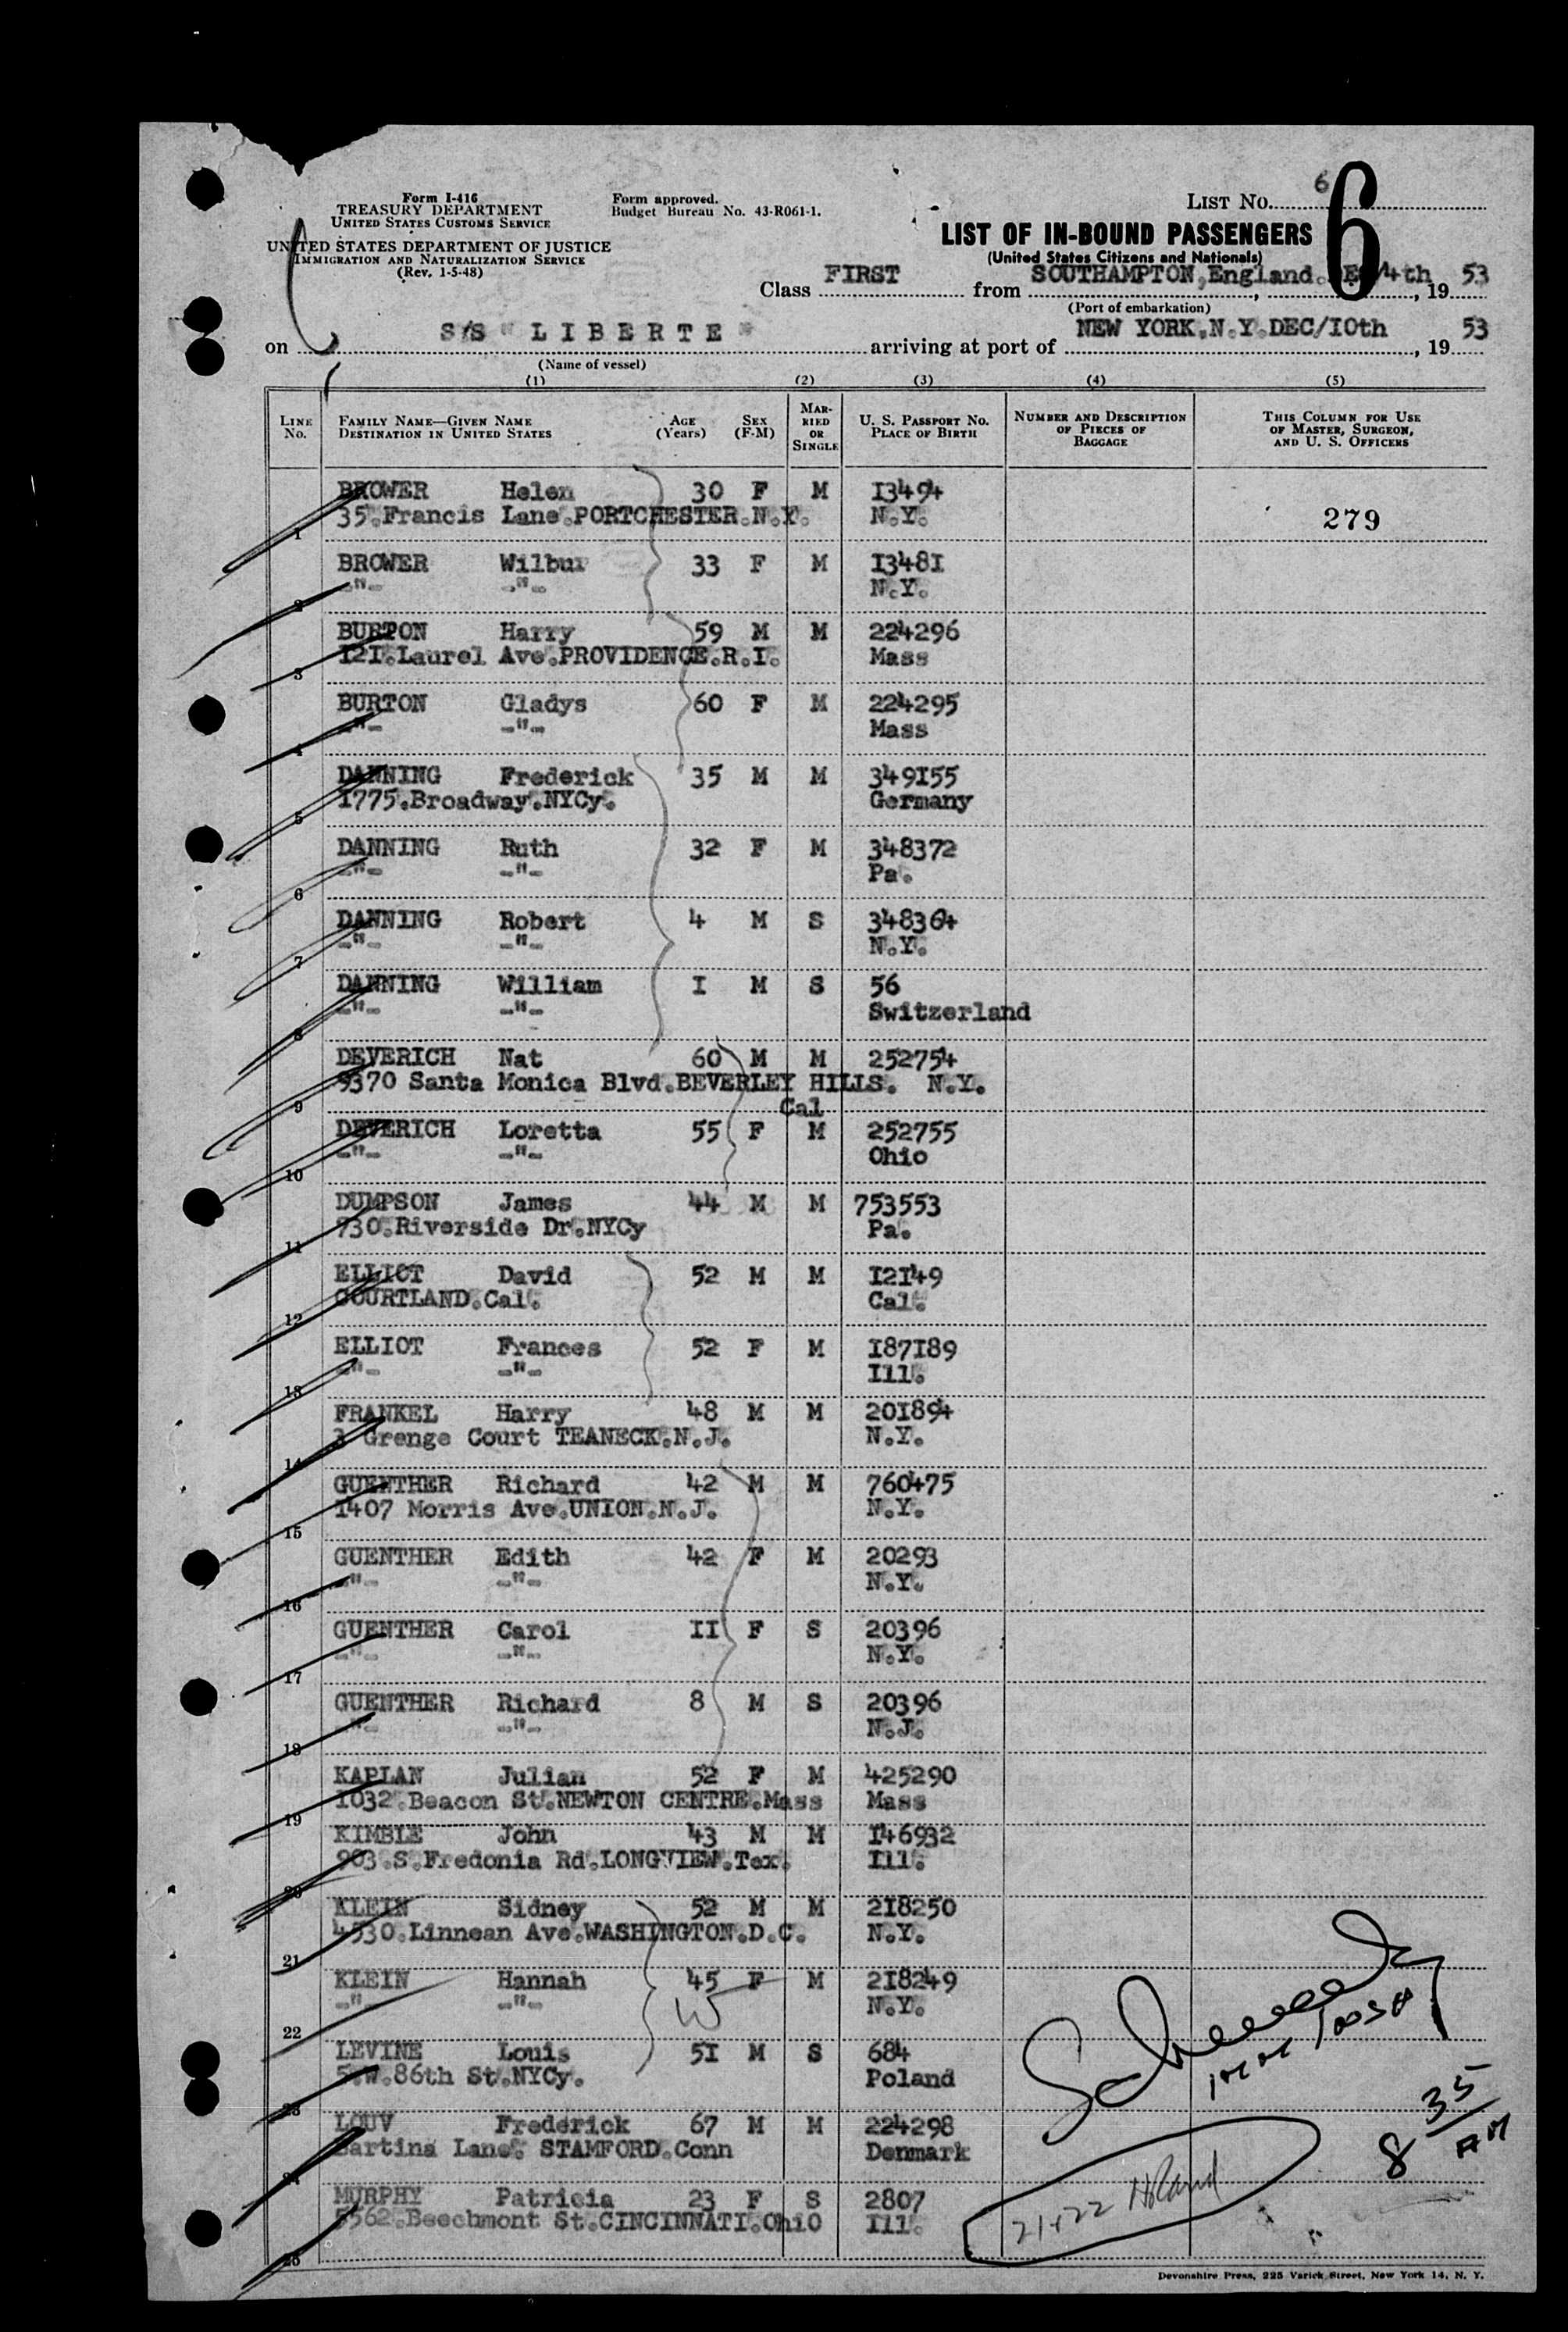 Form I-416
TREASURY DEPARTMENT
UNITED STATES CUSTOMS SERVICE
UNITED STATES DEPARTMENT OF JUSTICE
IMMIGRATION AND NATURALIZATION SERVICE
(Rev. 1-5-48)
Form approved.
Budget Bureau No. 43-R061-1.
LIST NO. 6
6
LIST OF IN-BOUND PASSENGERS
(United States Citizens and Nationals)
Class FIRST from SOUTHAMPTON,England. 4th, 19 53
(Port of embarkation)
on S/S " LIBERTE " arriving at port of NEW YORK.N.Y.DEC/I0th, 19 53
(Name of vessel)
(1) (2) (3) (4) (5)
LINE NO. FAMILY NAME—GIVEN NAME DESTINATION IN UNITED STATES AGE (YEARS) SEX (F-M) MARRIED OR SINGLE U. S. PASSPORT NO. PLACE OF BIRTH NUMBER AND DESCRIPTION OF PIECES OF BAGGAGE THIS COLUMN FOR USE OF MASTER, SURGEON, AND U. S. OFFICERS
BROWER Helen 30 F M I3494
1 35.Francis Lane.PORTCHESTER.N.Y. N.Y. 279
BROWER Wilbur 33 F M I348I
2 -"- -"- N.Y.
BURTON Harry 59 M M 224296
3 I2I.Laurel Ave.PROVIDENCE.R.I. Mass
BURTON Gladys 60 F M 224295
4 -"- -"- Mass
DANNING Frederick 35 M M 349I55
5 I775.Broadway.NYCy. Germany
DANNING Ruth 32 F M 348372
6 -"- -"- Pa.
DANNING Robert 4 M S 348364
7 -"- -"- N.Y.
DANNING William I M S 56
8 -"- -"- Switzerland
DEVERICH Nat 60 M M 252754
9 9370 Santa Monica Blvd.BEVERLEY HILLS. N.Y.
Cal
DEVERICH Loretta 55 F M 252755
10 -"- -"- Ohio
DUMPSON James 44 M M 753553
11 930.Riverside Dr.NYCy Pa.
ELLIOT David 52 M M I2I49
12 COURTLAND.Cal. Cal.
ELLIOT Frances 52 F M I87I89
13 -"- -"- Ill.
FRANKEL Harry 48 M M 20I894
14 3 Grenge Court TEANECK.N.J. N.Y.
GUENTHER Richard 42 M M 760475
15 I407 Morris Ave.UNION.N.J. N.Y.
GUENTHER Edith 42 F M 20293
16 -"- -"- N.Y.
GUENTHER Carol II F S 20396
17 -"- -"- N.Y.
GUENTHER Richard 8 M S 20396
18 -"- -"- N.J.
KAPLAN Julian 52 F M 425290
19 I032.Beacon St.NEWTON CENTRE.Mass Mass
KIMBLE John 43 M M I46932
20 903.S.Fredonia Rd.LONGVIEW.Tex. Ill.
KLEIN Sidney 52 M M 2I8250
21 4530.Linnean Ave.WASHINGTON.D.C. N.Y.
KLEIN Hannah 45 F M 2I8249
22 -"- -"- N.Y.
LEVINE Louis 5I M S 684
23 5.W.86th St.NYCy. Poland
LOUV Frederick 67 M M 224298
24 Bartina Lane. STAMFORD.Conn Denmark
MURPHY Patricia 23 F S 2807
25 5562.Beechmont St.CINCINNATI.OhiO Ill.
8 35 AM
21+22
Devonshire Press, 225 Varick Street, New York 14, N. Y.